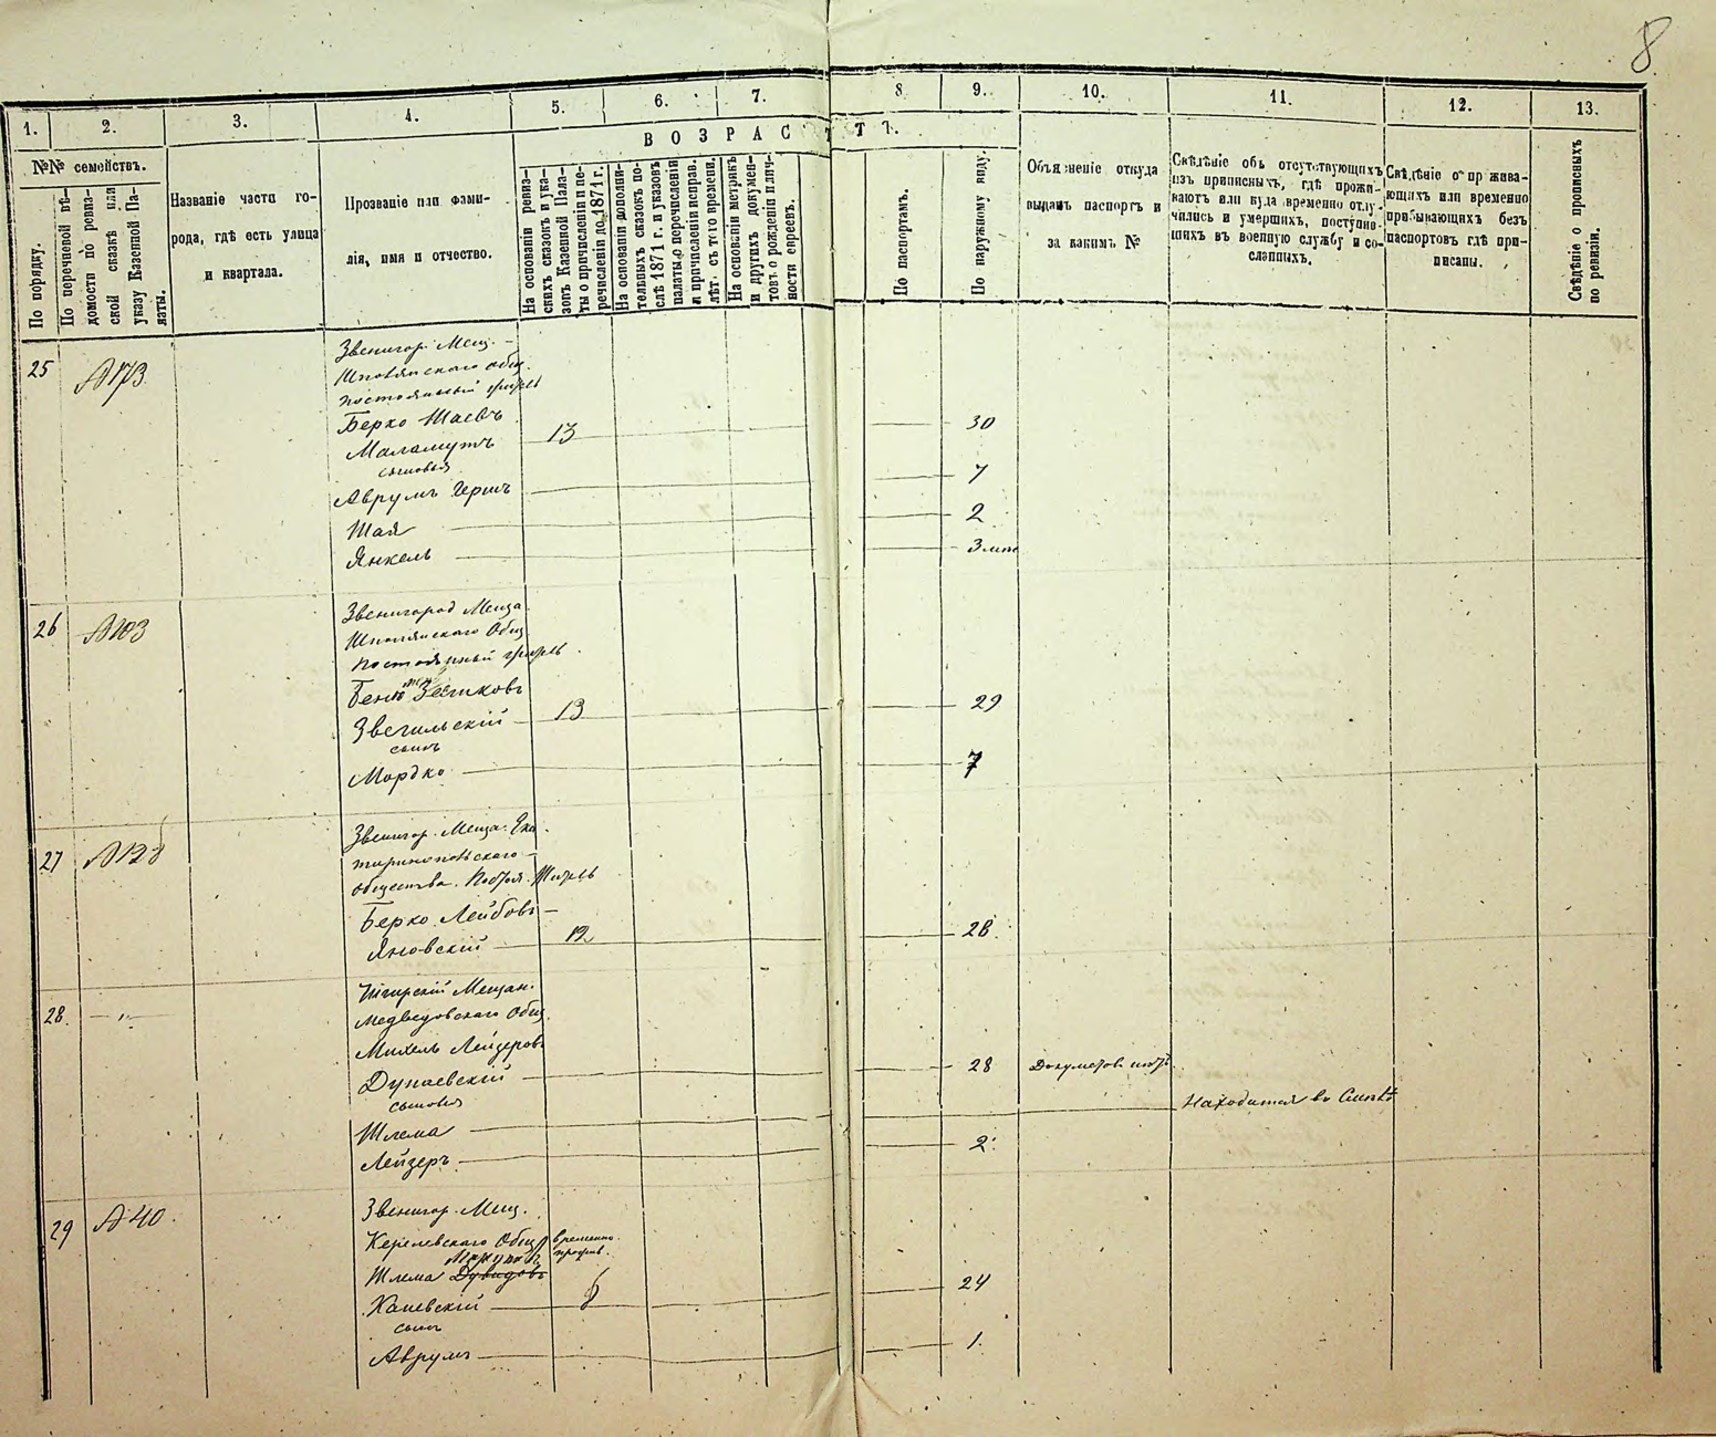 8
1. 2. 3. 4. 5. 6. 7. 8 9. 10. 11. 12. 13.
№№ семействъ.
По порядку.
По перечневой вѣ-
домости по ревиз-
ской сказкѣ или
указу Казенной Па-
латы.
Названіе части го-
рода, гдѣ есть улица
и квартала.
Прозваніе или фами-
лія, имя и отчество.
ВОЗРАСТЪ.
На основаніи ревиз-
скихъ сказокъ и ука-
зовъ Казенной Пала-
ты о причисленіи и пе-
речисленіи до 1871 г.
На основаніи дополни-
тельныхъ сказокъ по-
слѣ 1871 г. и указовъ
палаты о перечисленіи
и причисленіи исправ.
лѣт. съ того времени.
На основаніи метрикъ
и другихъ докумен-
товъ о рожденіи и лич-
ности евреевъ.
По паспортамъ.
По наружному виду.
Объясненіе откуда
выданъ паспортъ и
за какимъ №
Свѣдѣніе объ отсутствующихъ
изъ приписныхъ, гдѣ прожи-
ваютъ или куда временно отлу-
чились и умершихъ, поступив-
шихъ въ военную службу и со-
сланныхъ.
Свѣдѣніе о прожива-
ющихъ или временно
прибывающихъ безъ
паспортовъ гдѣ при-
писаны.
Свѣдѣніе о прописныхъ
по ревизіи.
25 №173 Звенигор. Мещ. -
Шполянскаго общ.
постоянный житель
Берко Шаевъ 30
Маламутъ 13
сыновья
Аврумъ Гершъ 7
Шая 2
Янкель 3 мѣс
26 №103 Звенигород Меща
Шполянскаго Общ.
постоянный житель.
Звегильскій 13 29
сынъ
Мордко 7
27 Звенигор. Меща. Ека
теринопольскаго
общества. Постоя. Житель
Берко Лейбовъ
Яновскій 12 28.
28. —"— Чигирскій Мещан.
Медведовскаго Общ.
Михель Лейзеровъ
Дунаевскій 28 Документов нетъ.
сыновья
Находится во
Шлема 2.
Лейзеръ
29 №40. Звенигор. Мещ.
Общ. временно.
прожив.
Шлема Дувидовъ 24
Каневскій 8
сынъ
Аврумъ 1.